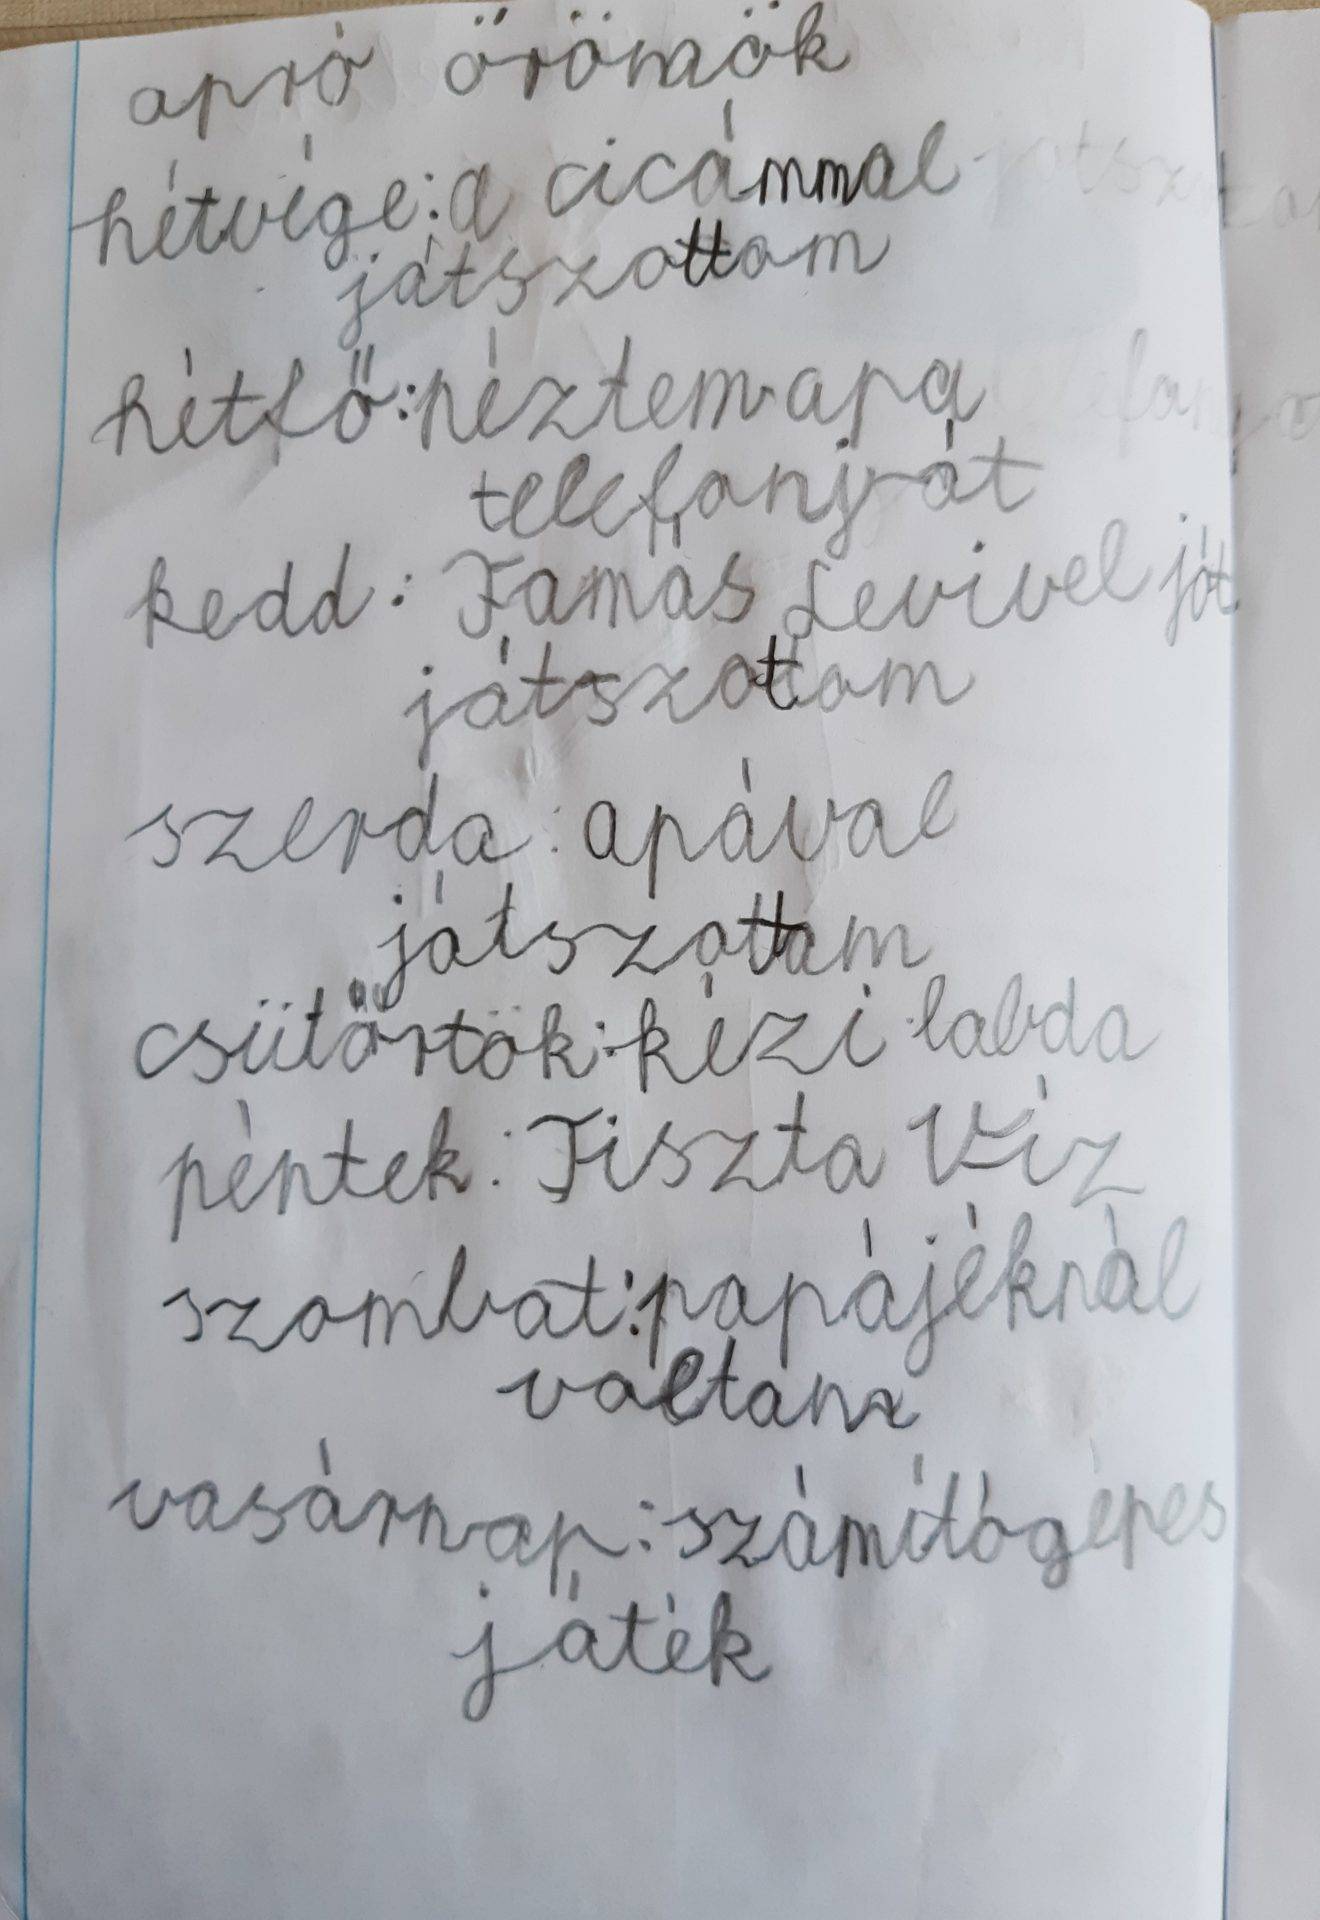 apró őrömök
hétvége: a cicámmal
játszottam
hétfő: néztem apa
telefonját
kedd: Tamás Levivel ját
játszottam
szerda: apával
játszottam
csütörtök: kézi labda
péntek: Tiszta Víz
szombat: papájéknál
voltam
vasárnap: számítógépes
játék